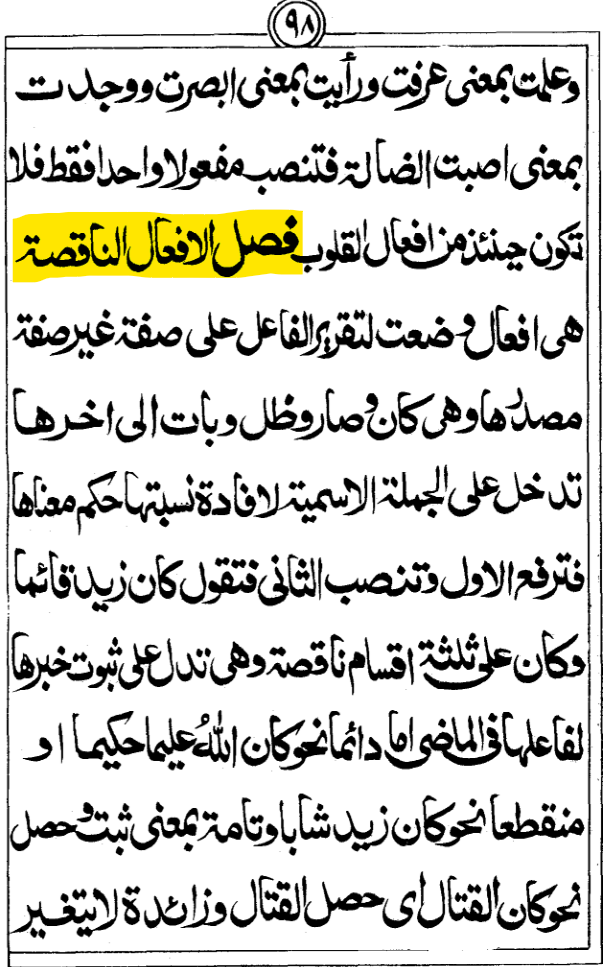 ٩٨
وعلمت بمعنى عرفت ورأيت بمعنى ابصرت ووجدت
بمعنى اصبت الضالة فتنصب مفعولا واحدا فقط فلا
تكون حينئذ من افعال القلوب فصل الافعال الناقصة
هى افعال وضعت لتقرير الفاعل على صفة غير صفة
مصدرها وهى كان وصار وظل وبات الى اخرها
تدخل على الجملة الاسمية لافادة نسبتها حكم معناها
فترفع الاول وتنصب الثانى فتقول كان زيد قائما
وكان على ثلثة اقسام ناقصة وهى تدل على ثبوت خبرها
لفاعلها فى الماضى اما دائما نحو كان اللهُ عليما حكيما او
منقطعا نحو كان زيد شابا وتامة بمعنى ثبت وحصل
نحو كان القتال اى حصل القتال وزائدة لا يتغير